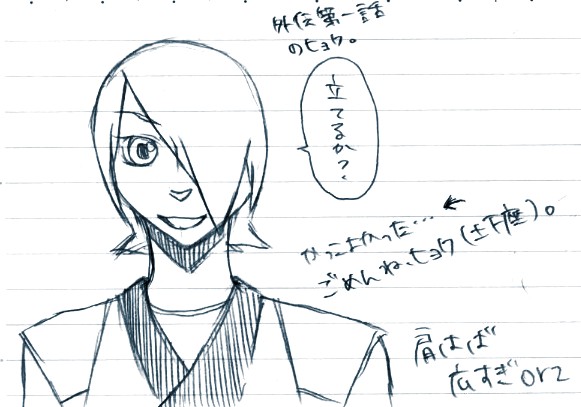 外伝第一話
のヒョウ。
立てるか？
かっこよかった…←
ごめんね、ヒョウ(土下座)。
肩はば
広すぎorz